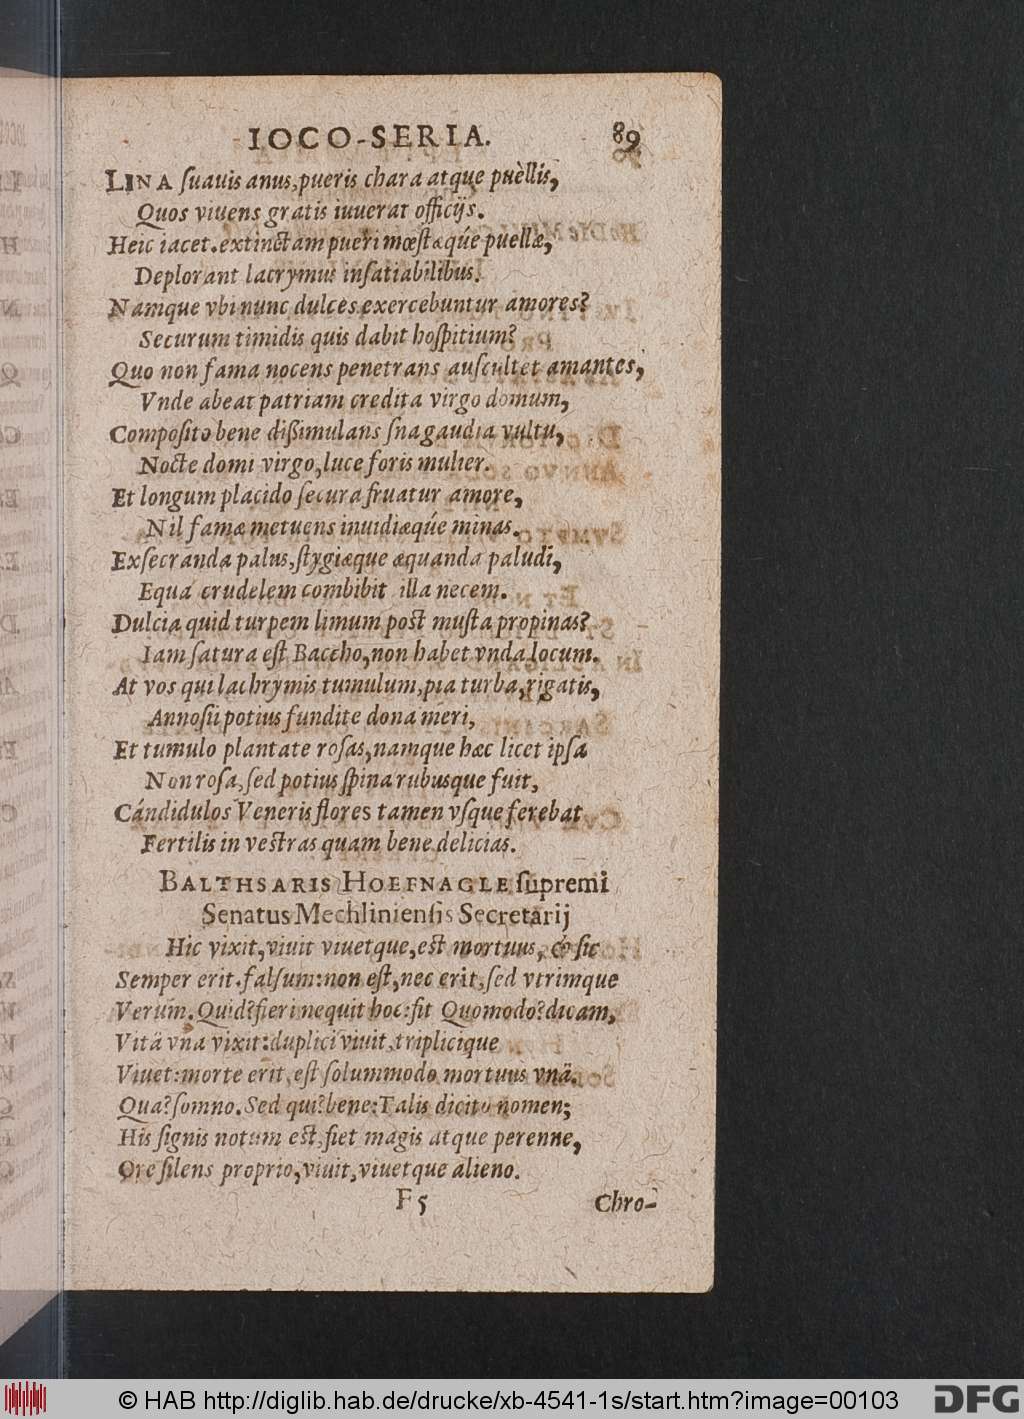 IOCO-SERIA. 89
LINA ſuauis anus, pueris chara atque puèllis,
Quos viuens gratis iuuerat officijs.
Heic iacet. extinctam pueri mœstæqúe puellæ,
Deplorant lacrymus inſatiabilibus.
Namque vbi nunc dulces exercebuntur amores?
Securum timidis quis dabit hoſpitium?
Quo non fama nocens penetrans auſcultet amantes,
Vnde abeat patriam credita virgo domum,
Compoſito bene dißimulans ſna gaudia vultu,
Nocte domi virgo, luce foris mulier.
Et longum placido ſecura fruatur amore,
Nil famæ metuens inuidiæqúe minas.
Exſecranda palus, ſtygiæque æquanda paludi,
Equa crudelem combibit illa necem.
Dulcia quid turpem limum poſt muſta propinas?
Iam ſatura eſt Baccho, non habet vnda locum.
At vos qui lachrymis tumulum, pia turba, rigatis,
Annoſii potius fundite dona meri,
Et tumulo plantate roſas, namque hæc licet ipſa
Non roſa, ſed potius ſpina rubusque fuit,
Cándidulos Veneris flores tamen vſque ferebat
Fertilis in veſtras quam bene delicias.
BALTHSARIS HOEFNAGLE ſupremi
Senatus Mechlinienſis Secretarij
Hic vixit, viuit viuetque, eſt mortuus, & ſic
Semper erit. falſum: non eſt, nec erit, ſed vtrimque
Verum. Quid? fieri nequit hoc: fit Quomodo? dicam,
Vitâ vna vixit: duplici viuit, triplicique
Viuet: morte erit, eſt ſolummodo mortuus vnâ.
Qua? ſomno. Sed qui? bene: Talis dicito nomen;
His ſignis notum eſt, fiet magis atque perenne,
Ore ſilens proprio, viuit, viuetque alieno.
F 5 Chro-
© HAB http://diglib.hab.de/drucke/xb-4541-1s/start.htm?image=00103 DFG